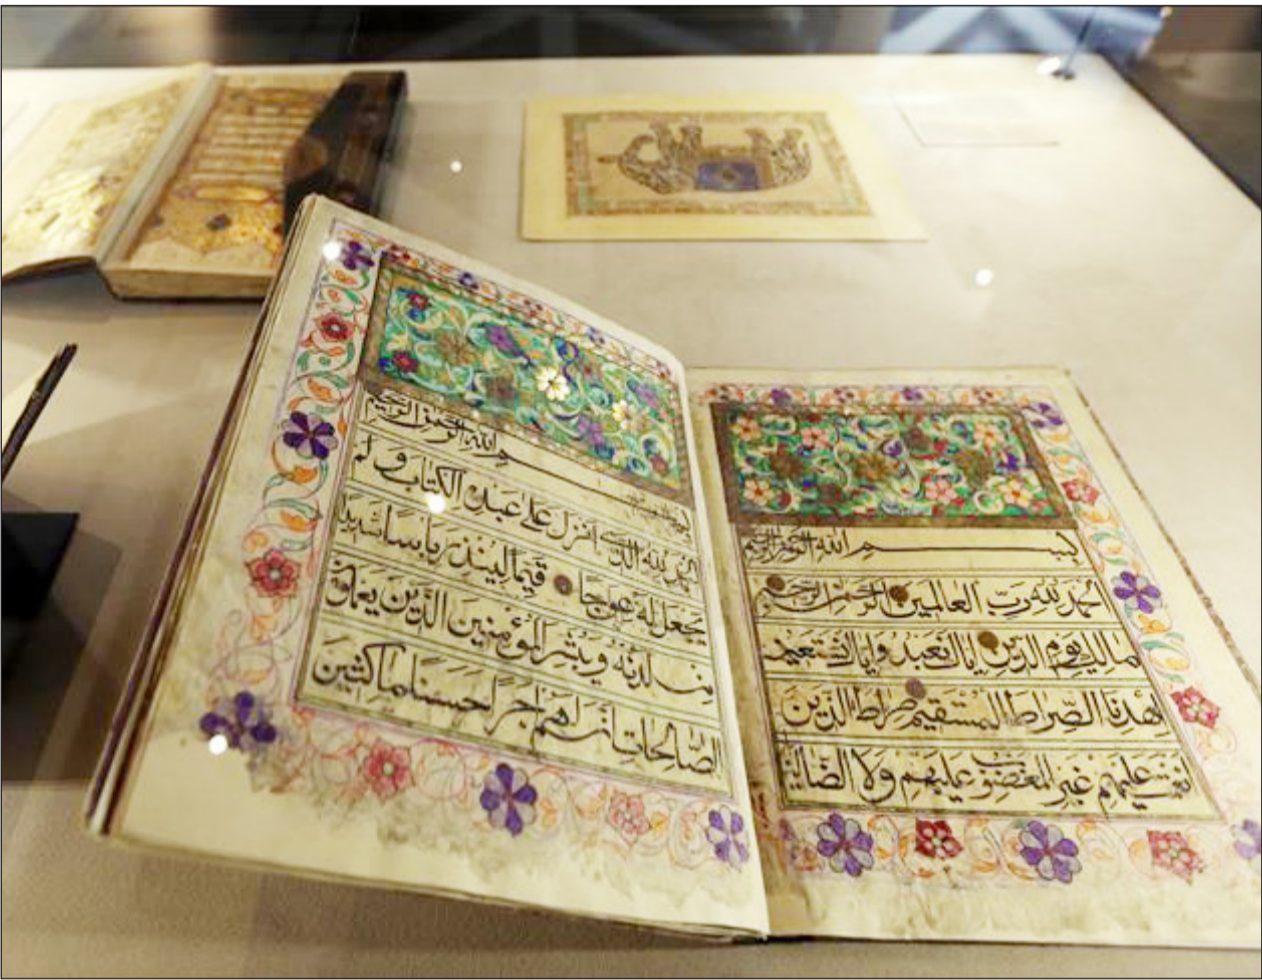 بسم الله الرحمن الرحيم
الحمد لله رب العالمين الرحمن الرحيم
مالك يوم الدين إياك نعبد وإياك نستعين
اهدنا الصراط المستقيم صراط الذين
أنعمت عليهم غير المغضوب عليهم ولا الضالين
بسم الله الرحمن الرحيم
الحمد لله الذي انزل على عبده الكتاب و لم
يجعل له عوجا قيما لينذر بأسا شديدا
من لدنه ويبشر المؤمنين الذين يعملون
الصالحات أن لهم أجرا حسنا ماكثين